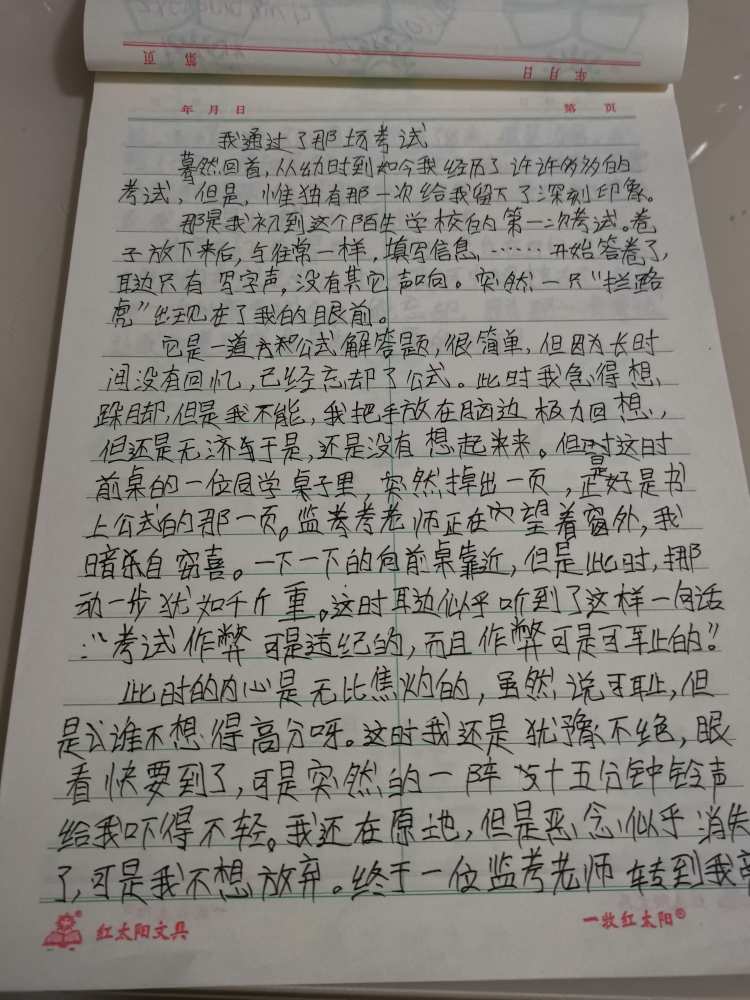 第 页
年 月 日
年 月 日 第 页
我通过了那场考试
蓦然回首，从幼时到如今我经历了许许多多的
考试，但是，惟独有那一次给我留下了深刻印象。
那是我初到这个陌生学校的第一次考试。卷
子放下来后，与往常一样，填写信息，……开始答卷了，
耳边只有写字声，没有其它声响。突然一只“拦路
虎”出现在了我的眼前。
它是一道公式解答题，很简单，但因为长时
间没有回忆，已经忘却了公式。此时我急得想
跺脚，但是我不能，我把手放在脑边极力回想，
但还是无济与于是，还是没有想起来来。但时这时
前桌的一位同学桌子里，突然掉出一页，是正好是书
上公式的那一页。监考考老师正在望着窗外，我
暗乐自窃喜。一下一下的向前桌靠近，但是此时，挪
动一步犹如千斤重。这时耳边似乎听到了这样一句话
：“考试作弊可是违纪的，而且作弊可是可耻的”。
此时的内心是无比焦灼的，虽然说可耻，但
是谁不想得高分呀。这时我还是犹豫不绝，眼
看快要到了，可是突然的一阵十五分钟铃声
给我吓得不轻。我还在原地，但是恶念似乎消失
了，可是我不想放弃。终于一位监考老师转到我
红太阳文具
一牧红太阳®